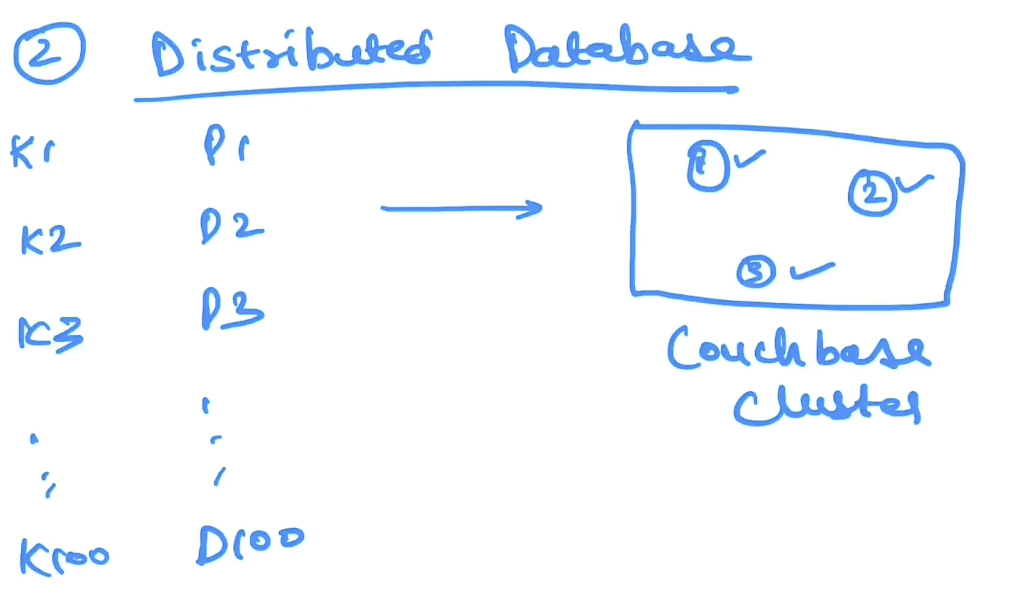 ② Distributed Database
K1 D1
K2 D2
K3 D3
K100 D100
① ✓
② ✓
③ ✓
Couchbase
cluster